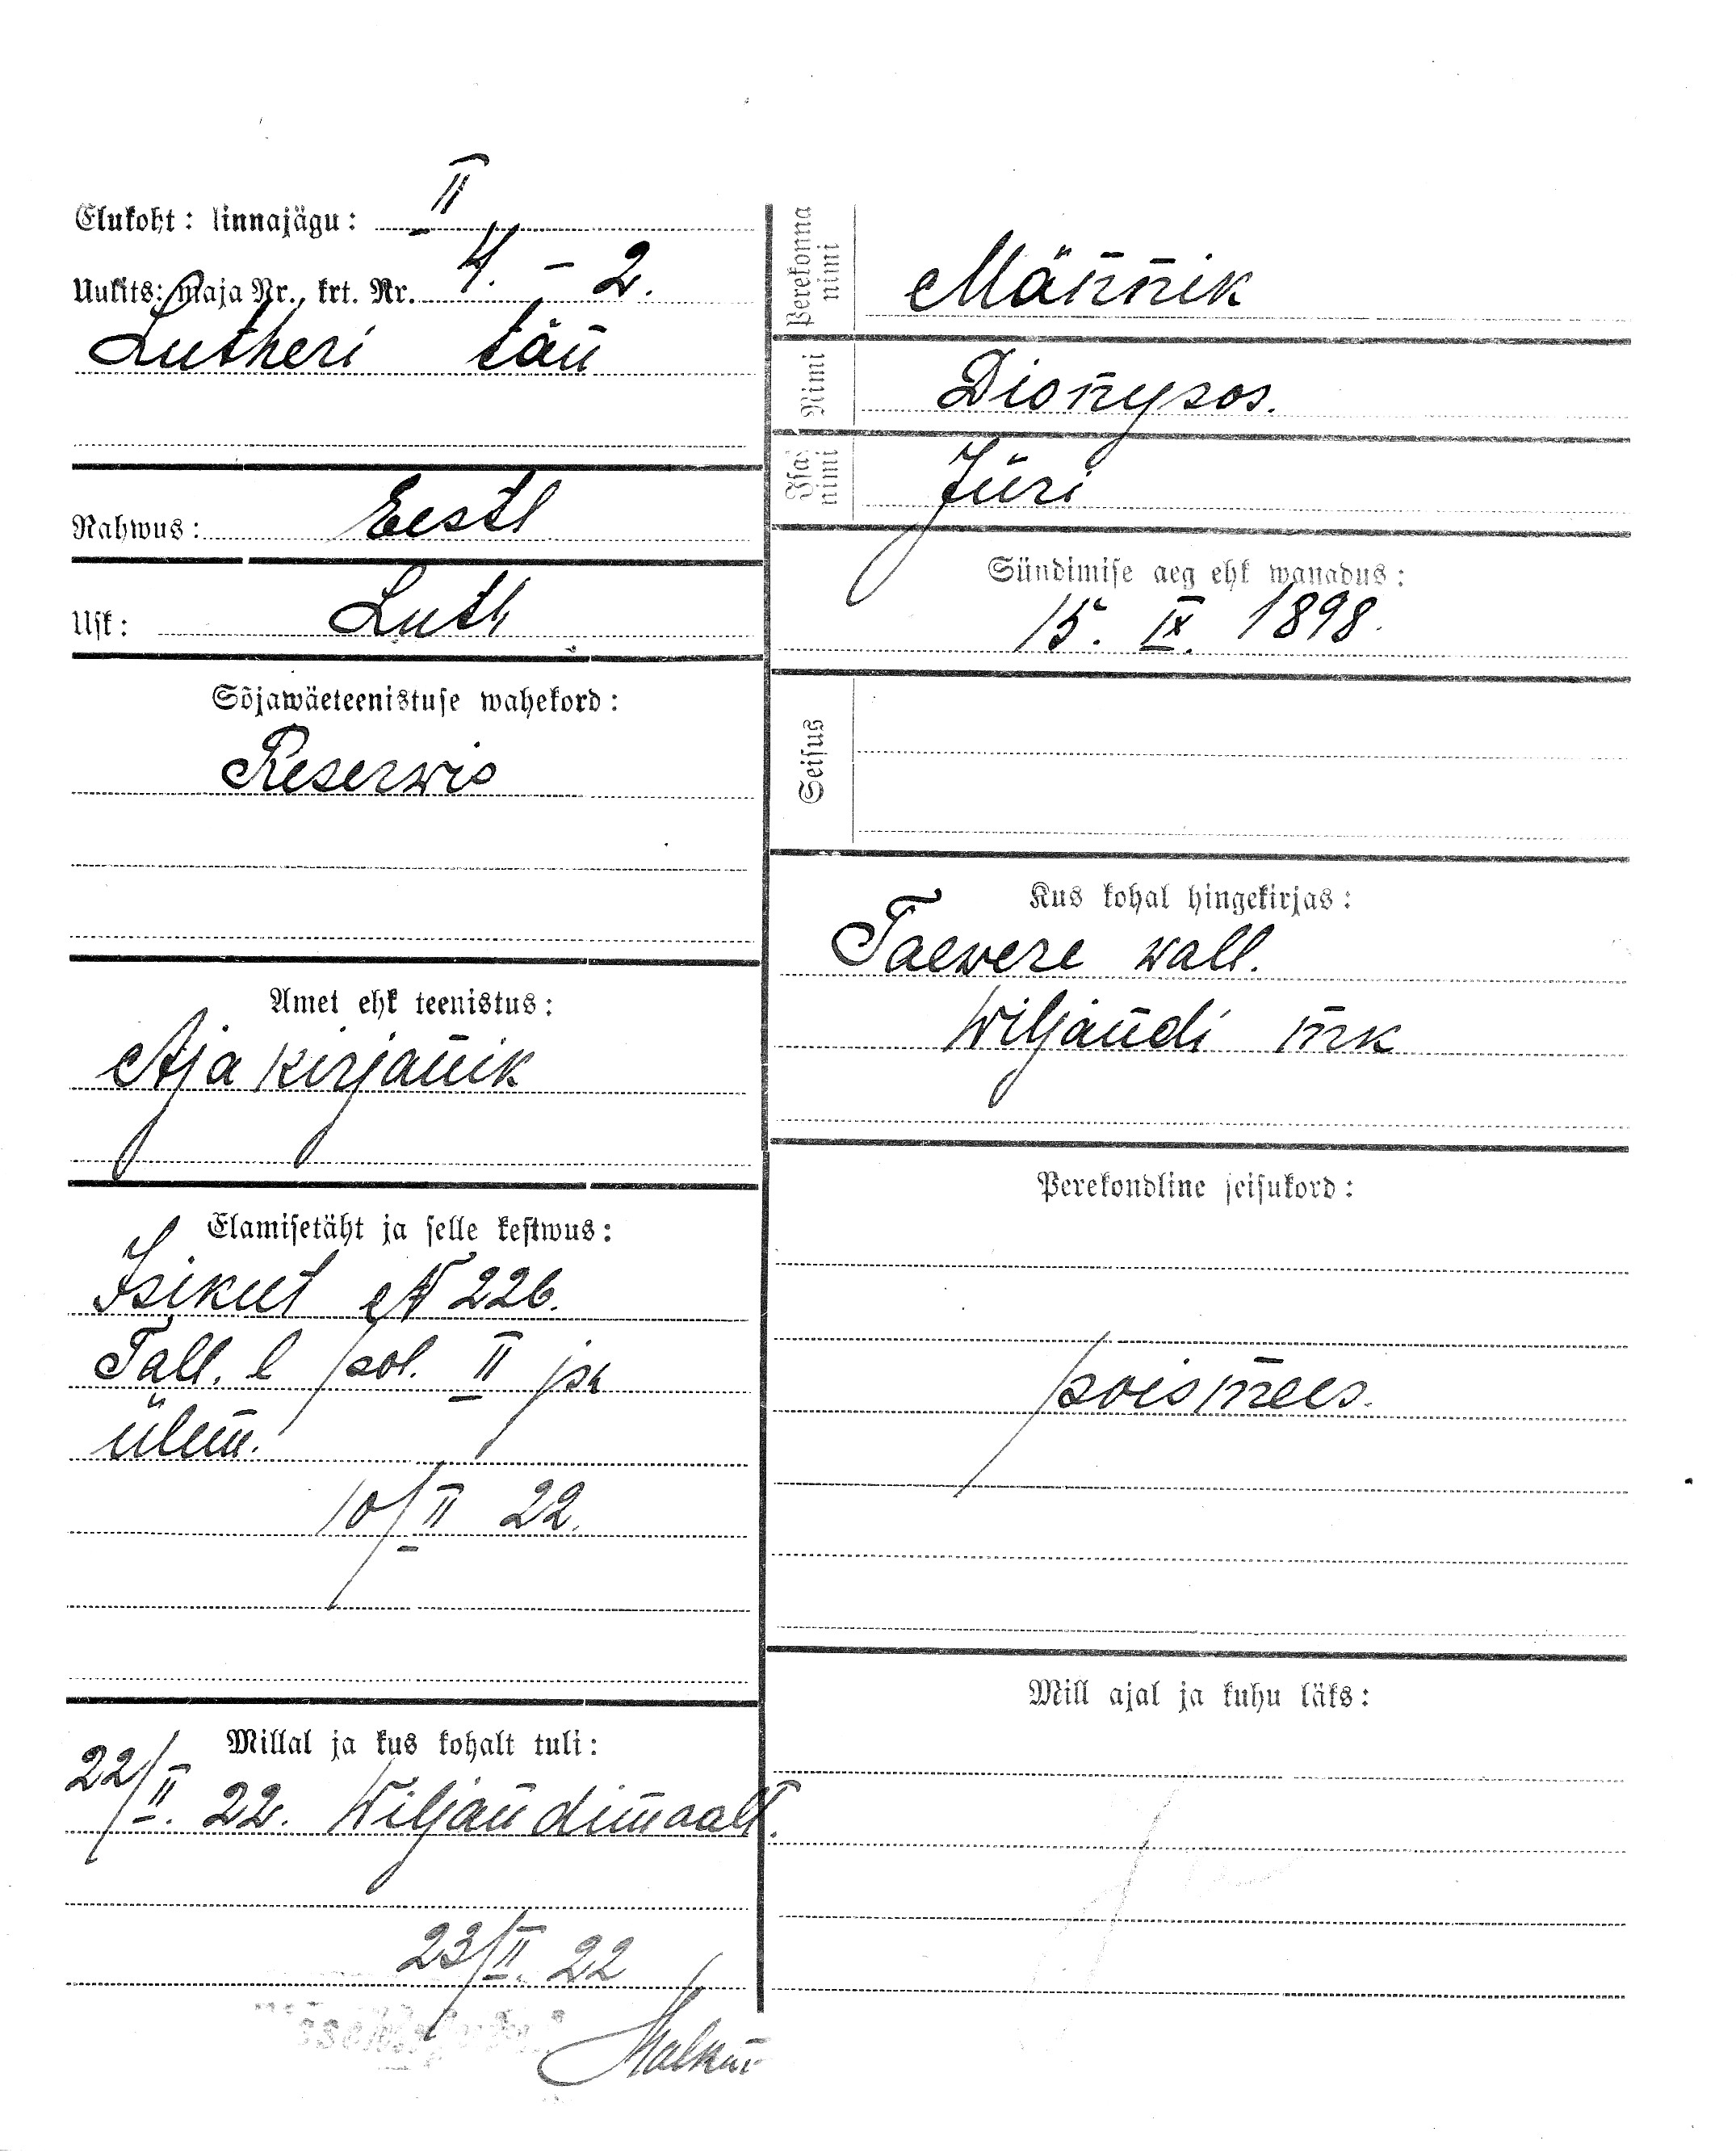 Elukoht: linnajagu: II
Uulits: maja Nr., krt. Nr. 4. – 2.
Lutheri tän
Rahwus: Eestl
Usk: Luth
Sõjawäeteenistuse wahekord:
Reserwis
Amet ehk teenistus:
Ajakirjanik
Elamisetäht ja selle kestwus:
Isikut № 226.
Tall. l pol. II jsk
ülem.
10/II 22.
Millal ja kus kohalt tuli:
22/II. 22. Wiljandimaalt.
23/II. 22
Perekonna nimi
Männik
Nimi
Dionysos.
Isa nimi
Jüri
Sündimise aeg ehk wanadus:
15. IX. 1898.
Seisus
Kus kohal hingekirjas:
Taewere wall.
Wiljandi mk
Perekondline seisukord:
poismees.
Mill ajal ja kuhu läks: